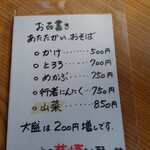 お品書き
あたたかい、おそば
○かけ……500円
○とろろ 700円
○めかぶ…750円
○行者にんにく…750円
○山菜……850円
大盛は200円増しです。